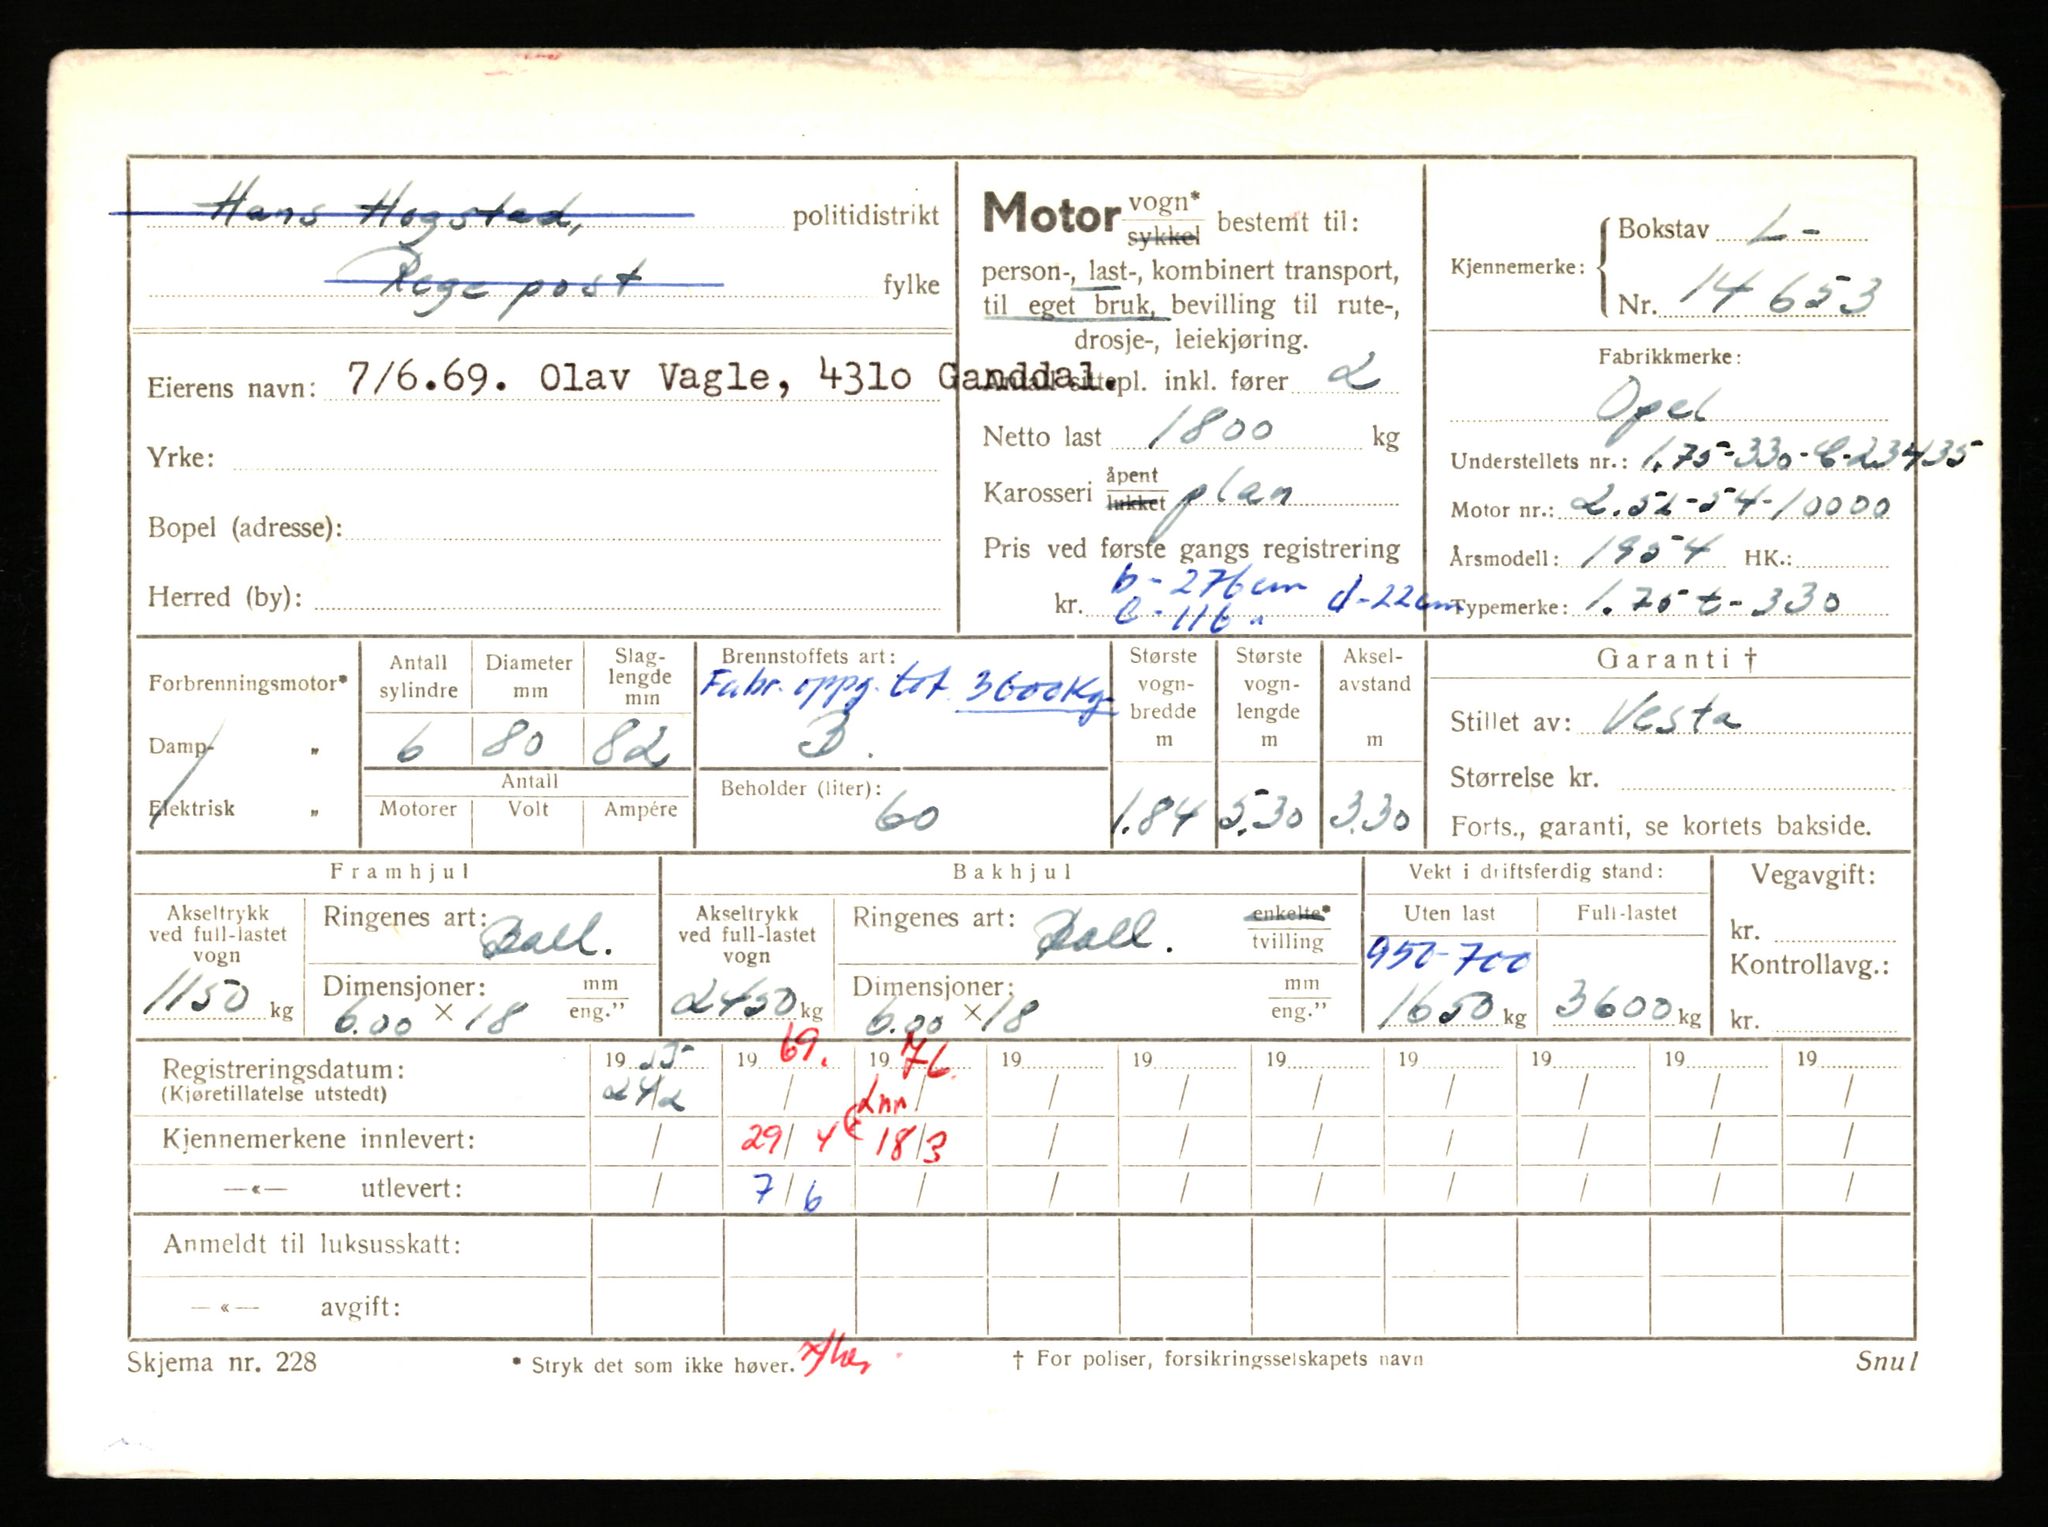 Hans Hogstad, politidistrikt
Rege post fylke
Eierens navn: 7/6.69. Olav Vagle, 4310 Ganddal.
Yrke:
Bopel (adresse):
Herred (by):
Motor vogn* sykkel bestemt til:
person-, last-, kombinert transport,
til eget bruk, bevilling til rute-,
drosje-, leiekjøring.
Antall sittepl. inkl. fører 2
Netto last 1800 kg
Karosseri åpent lukket plan
Pris ved første gangs registrering
b - 276 cm d - 22 cm
kr. c - 116 "
Kjennemerke: Bokstav L-
Nr. 14653
Fabrikkmerke:
Opel
Understellets nr.: 1.75-330-C-23435
Motor nr.: 2.52-54-10000
Årsmodell: 1954 HK.:
Typemerke: 1.75 t-330
Forbrenningsmotor*
Damp- "
Elektrisk "
Antall sylindre 6
Diameter mm 80
Slaglengde mm 82
Antall
Motorer Volt Ampére
Brennstoffets art:
Fabr. oppg. tot. 3600 Kg.
B.
Beholder (liter):
60
Største vognbredde m 1.84
Største vognlengde m 5.30
Akselavstand m 3.30
Garanti †
Stillet av: Vesta
Størrelse kr.
Forts., garanti, se kortets bakside.
Framhjul
Akseltrykk ved full-lastet vogn 1150 kg
Ringenes art: Ball.
Dimensjoner: 6.00 × 18 mm eng."
Bakhjul
Akseltrykk ved full-lastet vogn 2450 kg
Ringenes art: Ball. enkelte* tvilling
Dimensjoner: 6.00 × 18 mm eng."
Vekt i driftsferdig stand:
Uten last Full-lastet
950-700
1650 kg 3600 kg
Vegavgift:
kr.
Kontrollavg.:
kr.
Registreringsdatum: 19 55 19 69. 19 76. 19 19 19 19 19 19 19
(Kjøretillatelse utstedt) 24/2 / / / / / / / / /
Kjennemerkene innlevert: / 29/4 18/3 / / / / / / /
—«— utlevert: / 7/6 / / / / / / / /
Anmeldt til luksusskatt:
—«— avgift:
Skjema nr. 228
* Stryk det som ikke høver.
† For poliser, forsikringsselskapets navn
Snul